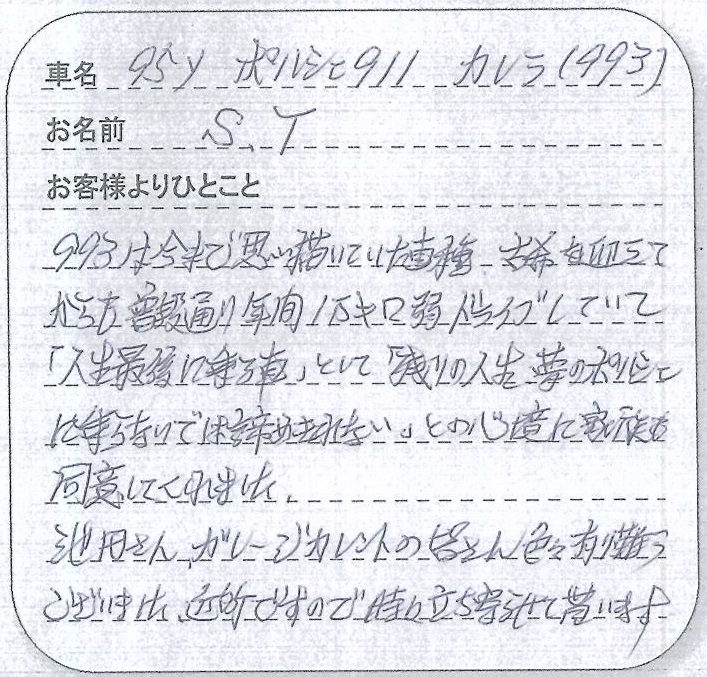 車名 95y ポルシェ911 カレラ(993)
お名前 S.T
お客様よりひとこと
993は今まで思い描いていた車種、古希を迎えて
からも普段通り年間1万キロ弱ドライブしていて
「人生最後に乗る車」として「残りの人生夢のポルシェ
に乗らないでは諦めきれない」との心境に家族も
同意してくれました。
池田さん、ガレージカレントの皆さん色々有難う
ございました、近所ですので時々立ち寄らせて貰います